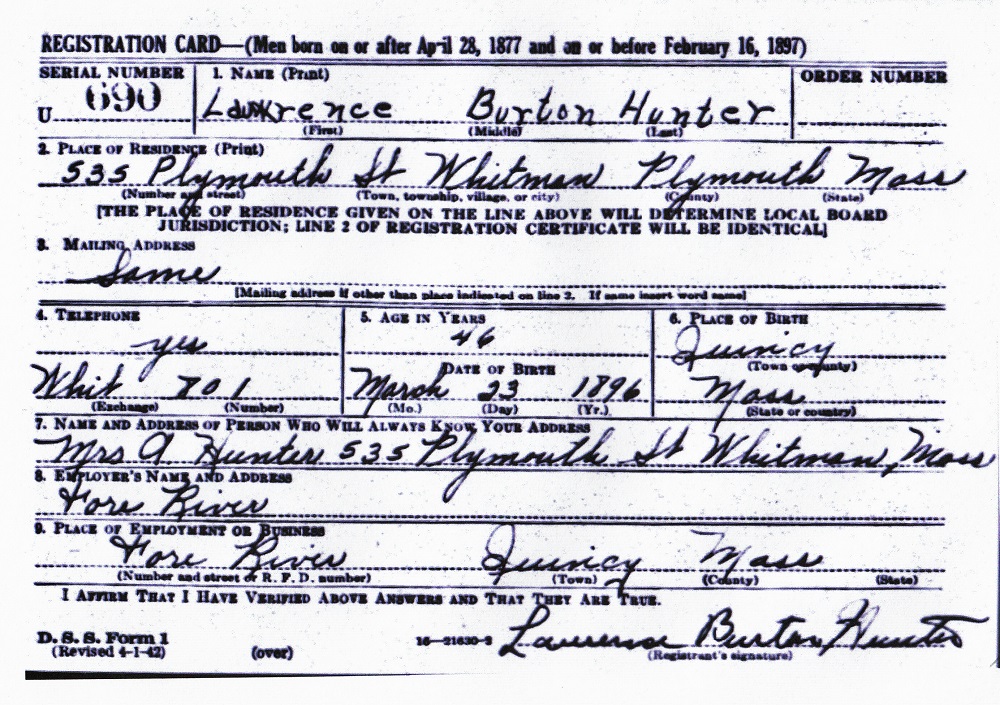 REGISTRATION CARD—(Men born on or after April 28, 1877 and on or before February 16, 1897)
SERIAL NUMBER 1. NAME (Print) ORDER NUMBER
U 690 Lawrence Burton Hunter
(First) (Middle) (Last)
2. PLACE OF RESIDENCE (Print)
535 Plymouth St Whitman Plymouth Mass
(Number and street) (Town, township, village, or city) (County) (State)
[THE PLACE OF RESIDENCE GIVEN ON THE LINE ABOVE WILL DETERMINE LOCAL BOARD
JURISDICTION; LINE 2 OF REGISTRATION CERTIFICATE WILL BE IDENTICAL]
3. MAILING ADDRESS
Same
[Mailing address if other than place indicated on line 2. If same insert word same]
4. TELEPHONE 5. AGE IN YEARS 6. PLACE OF BIRTH
yes 46 Quincy
DATE OF BIRTH (Town or county)
Whit 801 March 23 1896 Mass
(Exchange) (Number) (Mo.) (Day) (Yr.) (State or country)
7. NAME AND ADDRESS OF PERSON WHO WILL ALWAYS KNOW YOUR ADDRESS
Mrs A Hunter 535 Plymouth St Whitman, Mass
8. EMPLOYER'S NAME AND ADDRESS
Fore River
9. PLACE OF EMPLOYMENT OR BUSINESS
Fore River Quincy Mass
(Number and street or R. F. D. number) (Town) (County) (State)
I AFFIRM THAT I HAVE VERIFIED ABOVE ANSWERS AND THAT THEY ARE TRUE.
D. S. S. Form 1 16—21630-2 Lawrence Burton Hunter
(Revised 4-1-42) (over) (Registrant's signature)